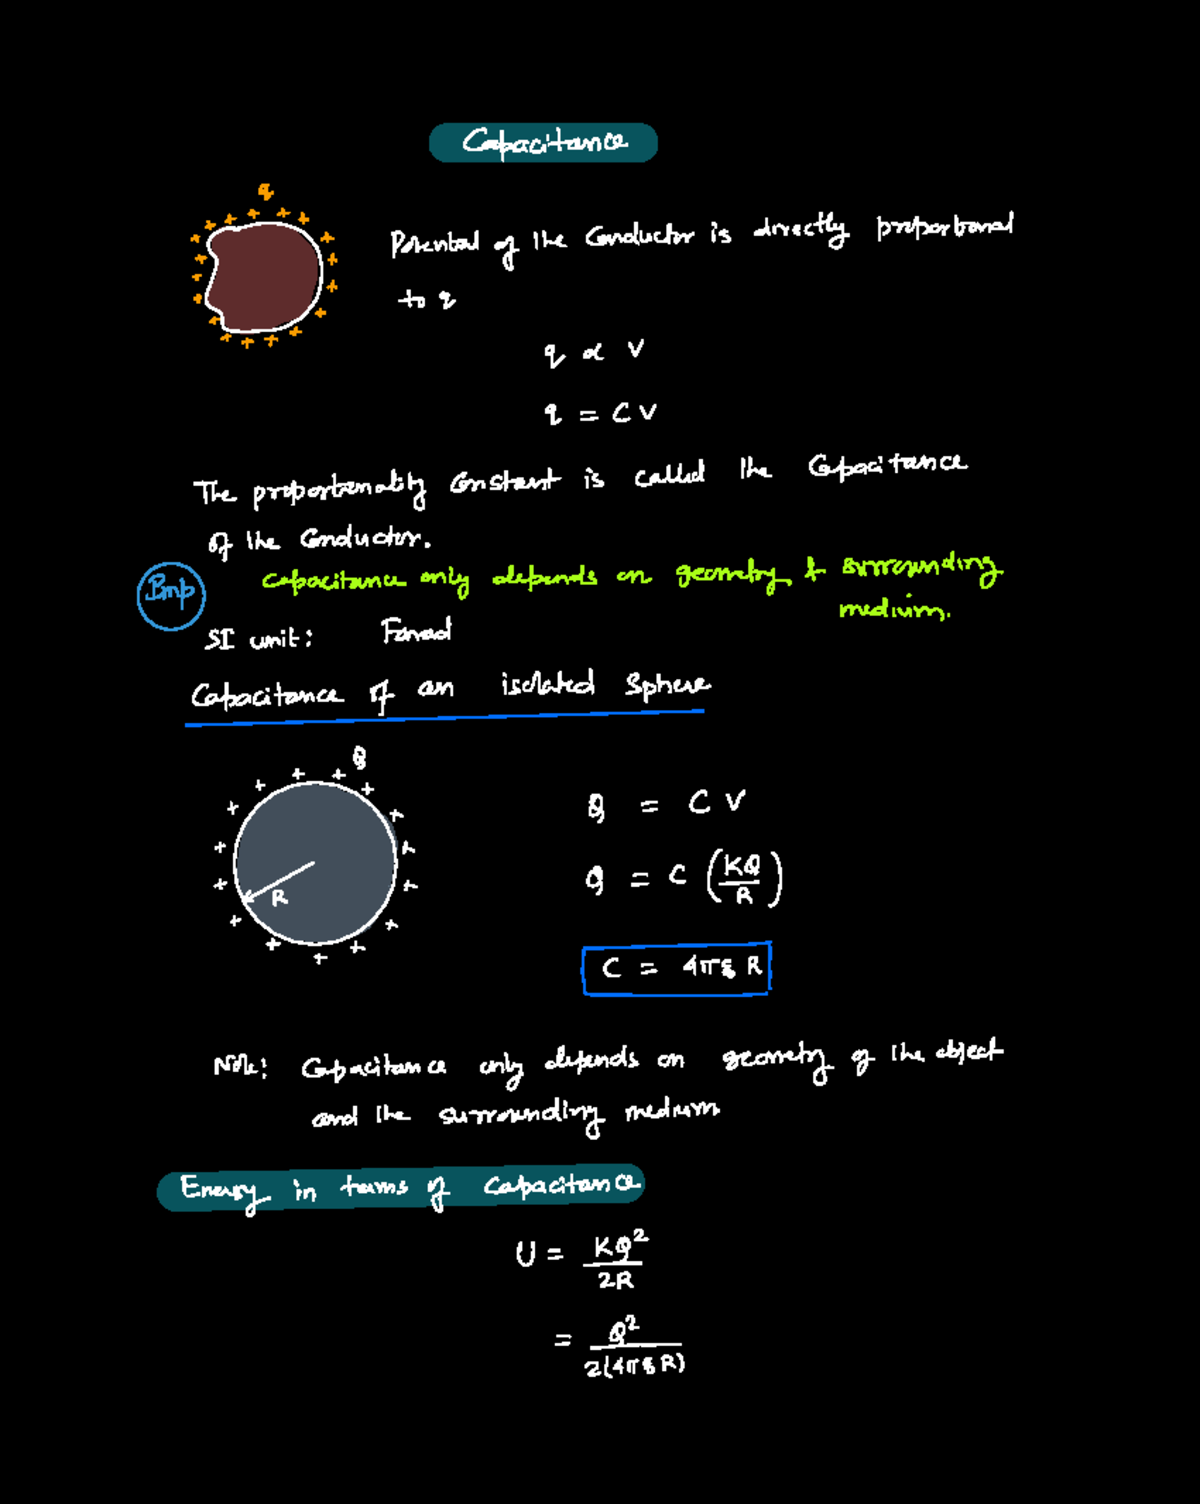 Capacitance
q
Potential of the Conductor is directly proportional
to q
q ∝ V
q = C V
The proportionality Constant is called the Capacitance
of the Conductor.
Imp
Capacitance only depends on geometry & surrounding
medium.
SI unit: Farad
Capacitance of an isolated Sphere
Q
R
Q = C V
Q = C (KQ/R)
C = 4πε₀ R
Note: Capacitance only depends on geometry of the object
and the surrounding medium
Energy in terms of Capacitance
U = KQ²/2R
= Q²/2(4πε₀R)